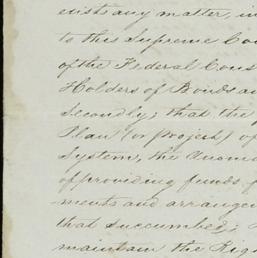 exists any matter, in
to this Supreme Cou
of the Federal Cons
Holders of Bonds an
Secondly; that the
Plan (or project) of
System, the Unani
of providing funds f
ments and arrange
that succumbed;
maintain the Rig